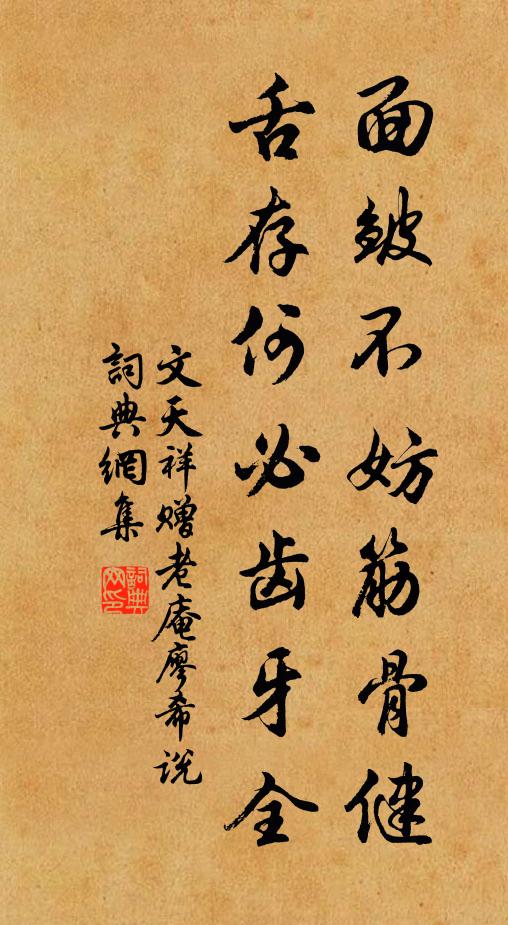 面皱不妨筋骨健
舌存何必齿牙全
文天祥赠老庵廖希说
詞典網集
詞典
网印